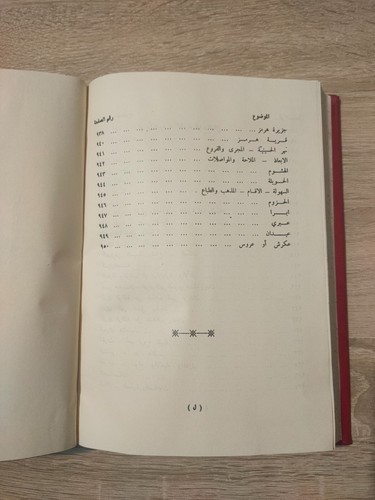 الموضوع رقم الصفحة
جزيرة هرمز ... ... ... ... ... ... ... ... ... ٩٣٨
قرية هرمز ... ... ... ... ... ... ... ... ٩٤٠
نهر الحسينية – المجرى والفروع ... ... ... ... ... ... ٩٤١
الأبعاد – الملاحة والمواصلات ... ... ... ... ... ... ٩٤٢
... ... ... ... ... ... ... ... ٩٤٣
الحويلة ... ... ... ... ... ... ... ... ٩٤٤
الهولة – الأقسام – المذهب والطباع ... ... ... ... ... ٩٤٥
الحزوم ... ... ... ... ... ... ... ... ٩٤٦
ايرا ... ... ... ... ... ... ... ... ٩٤٧
... ... ... ... ... ... ... ... ٩٤٨
ميدان ... ... ... ... ... ... ... ... ٩٤٩
عكرش أو عروس ... ... ... ... ... ... ... ٩٥٠